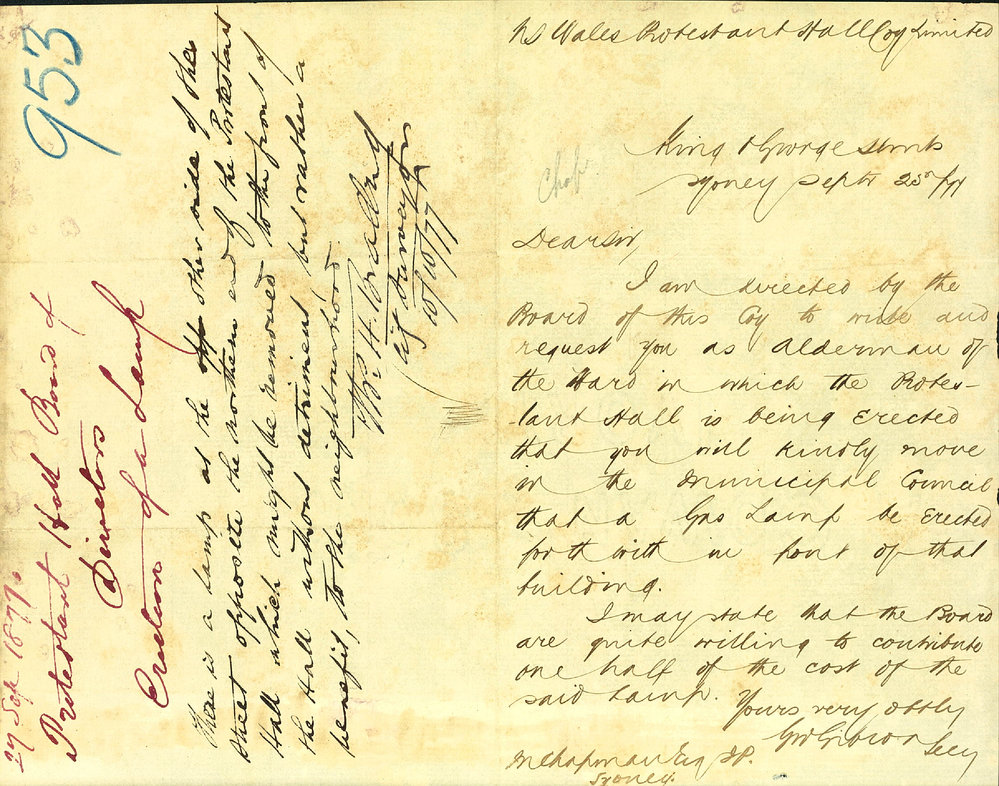 953
27 Sep 1877
Protestant Hall Board of
Directors
Erection of a Lamp
There is a lamp at the opp other side of the
street opposite the northern end of the Protestant
Hall which might be removed to the front of
the Hall without detriment, but rather a
benefit, to the neighbourhood.
City Surveyor
10/10/77
N S Wales Protestant Hall Coy Limited
King & George Streets
Sydney Septr 25th /77
Chap
Dear Sir,
I am directed by the
Board of this Coy to write and
request you as Alderman of
the Ward in which the Protes-
tant Hall is being Erected
that you will kindly move
in the Municipal Council
that a Gas Lamp be Erected
forthwith in front of that
building.
I may state that the Board
are quite willing to contribute
one half of the cost of the
said Lamp.
Yours very obtly
Secy
M Chapman Esq JP.
Sydney.